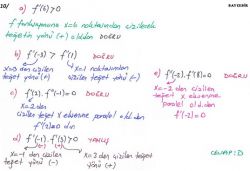 10/
RAYENİR
a) f'(6)>0
f fonksiyonuna x=6 noktasından çizilecek
teğetin yönü (+) olduğundan DOĞRU
b) f'(-3) > f'(1) DOĞRU
x=-3 den çizilen teğet yönü (+)
x=1 noktasından çizilen teğet yönü (-)
c) f'(2)=0 DOĞRU
x=2 den çizilen teğet x eksenine paralel old. dan
f'(2)=0 dır
d) f'(-1).f'(3)>0 YANLIŞ
(-) (+)
x=-1 den çizilen teğet yönü (-)
x=3 den çizilen teğet yönü (+)
e) f'(-2).f'(8)=0 DOĞRU
x=-2 den çizilen teğet x eksenine paralel old. dan
f'(-2)=0
CEVAP: D